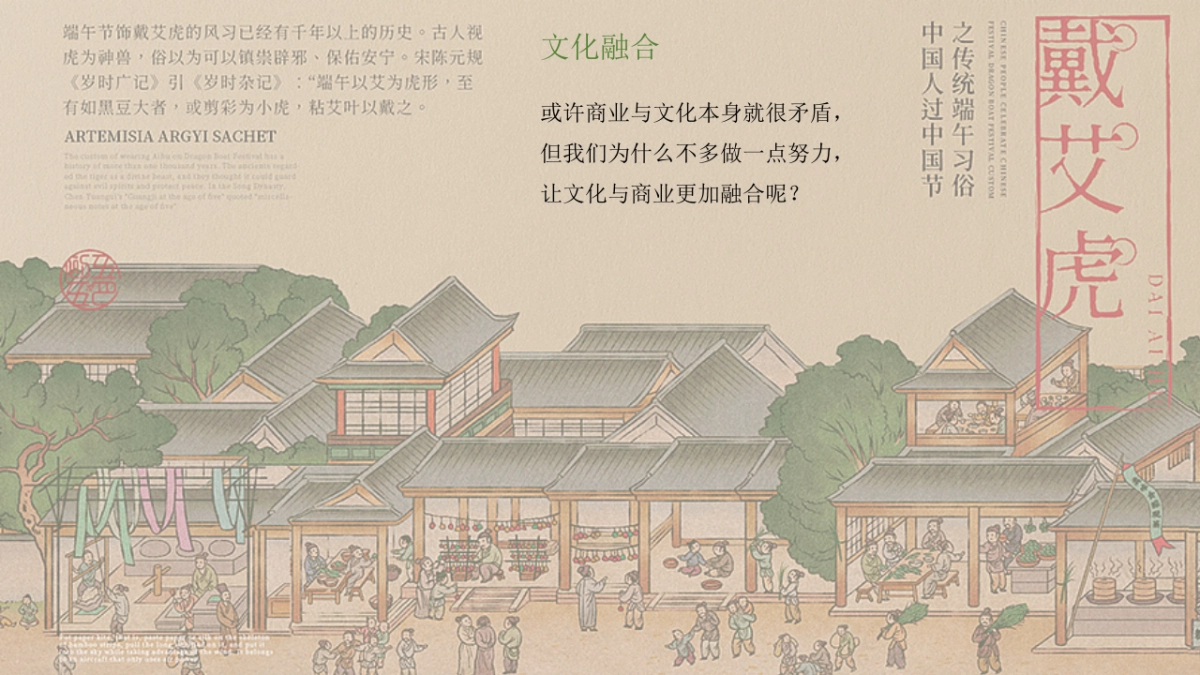 端午节饰戴艾虎的风习已经有千年以上的历史。古人视
虎为神兽，俗以为可以镇祟辟邪、保佑安宁。宋陈元规
《岁时广记》引《岁时杂记》：“端午以艾为虎形，至
有如黑豆大者，或剪彩为小虎，粘艾叶以戴之。
ARTEMISIA ARGYI SACHET
The custom of wearing Aihu on Dragon Boat Festival has a
history of more than one thousand years. The ancients regard-
ed the tiger as a divine beast, and they thought it could guard
against evil spirits and protect peace. In the Song Dynasty,
Chen Yuangui's "Guangji at the age of five" quoted "miscella-
neous notes at the age of five".
文化融合
或许商业与文化本身就很矛盾，
但我们为什么不多做一点努力，
让文化与商业更加融合呢？
戴艾虎
DAI AI
CHINESE PEOPLE CELEBRATE CHINESE
FESTIVAL DRAGON BOAT FESTIVAL CUSTOM
之传统端午习俗
中国人过中国节
For paper kite, that is, paste paper or silk on the skeleton
of bamboo strips, pull the long
the sky while taking advantage of the wind. It belongs
to an aircraft that only uses air power